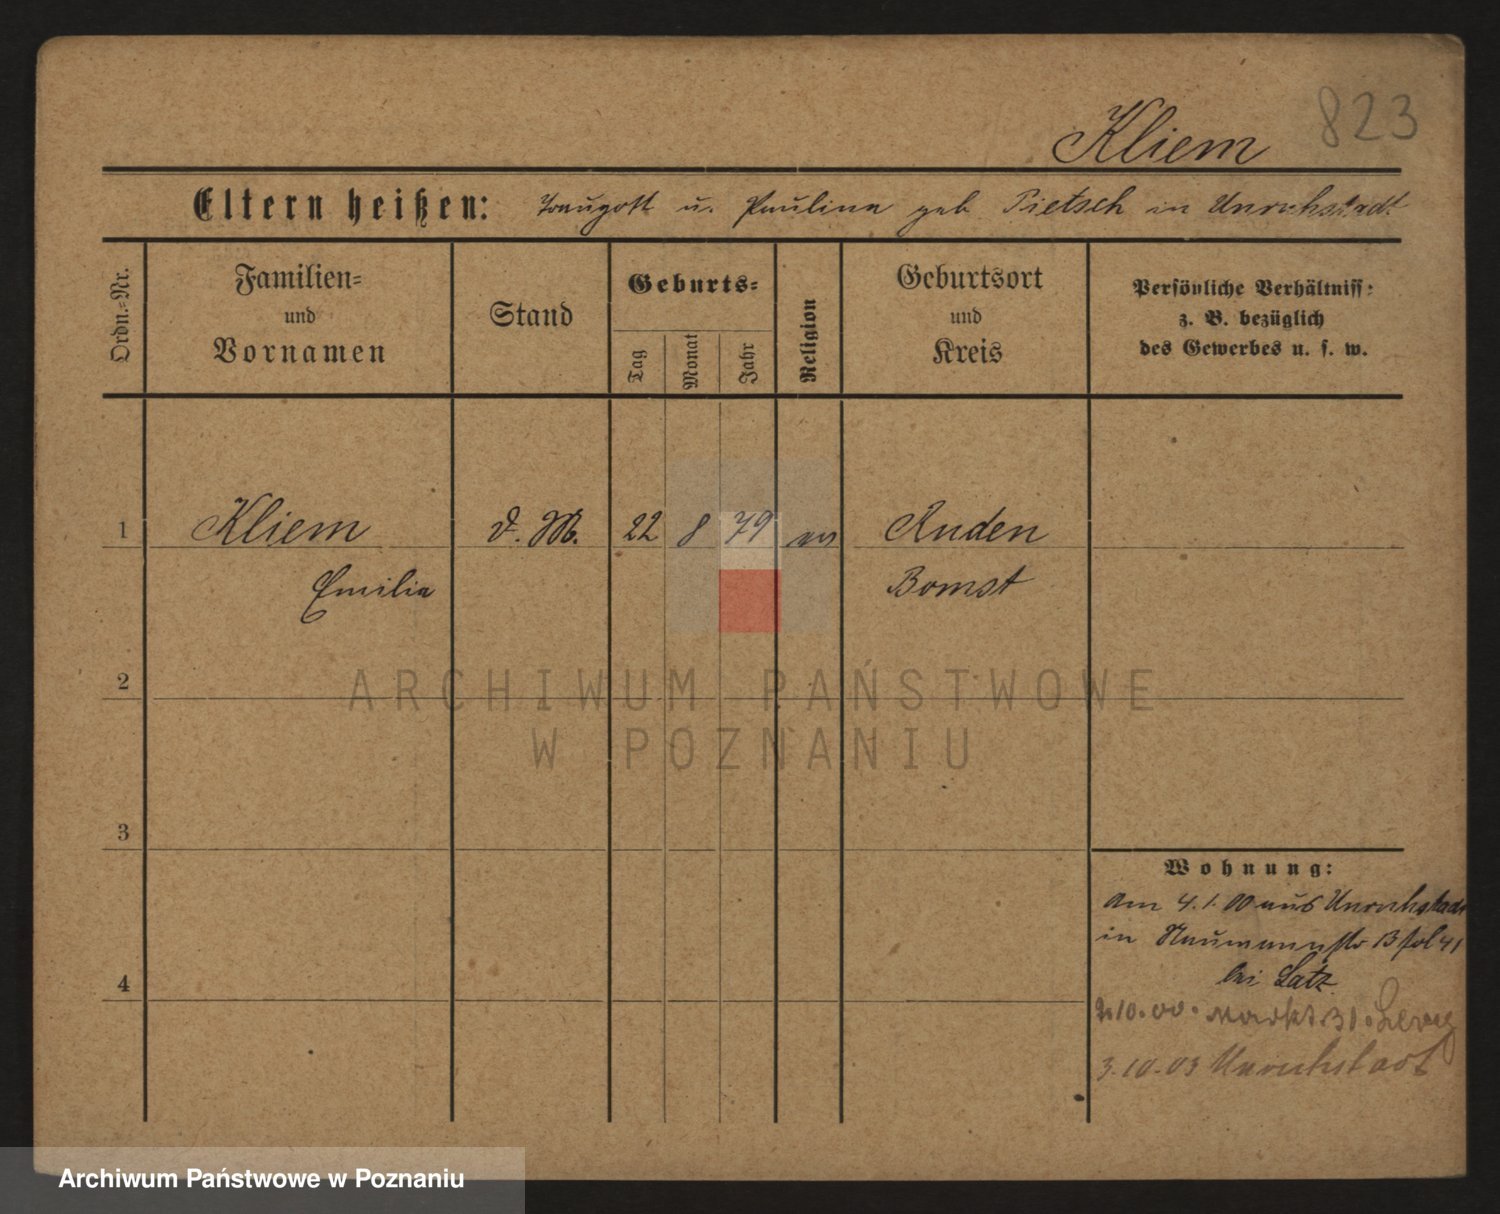 823
Kliem
Eltern heißen: Traugott u. Pauline geb Pietsch in Unruhstadt
Ordn.-Nr.
Familien- und Vornamen
Stand
Geburts-
Tag
Monat
Jahr
Religion
Geburtsort und Kreis
Persönliche Verhältniss- z. B. bezüglich des Gewerbes u. s. w.
1 Kliem D. M. 22 8 79 ev Ruden
Emilie Bomst
2
3
4
Wohnung:
Am 4.1.00 aus Unruhstadt
in Naumannstr 13 fol 41
bei Latz
2.10.00. Markt 31.
3.10.03 Unruhstadt
ARCHIWUM PAŃSTWOWE
W POZNANIU
Archiwum Państwowe w Poznaniu